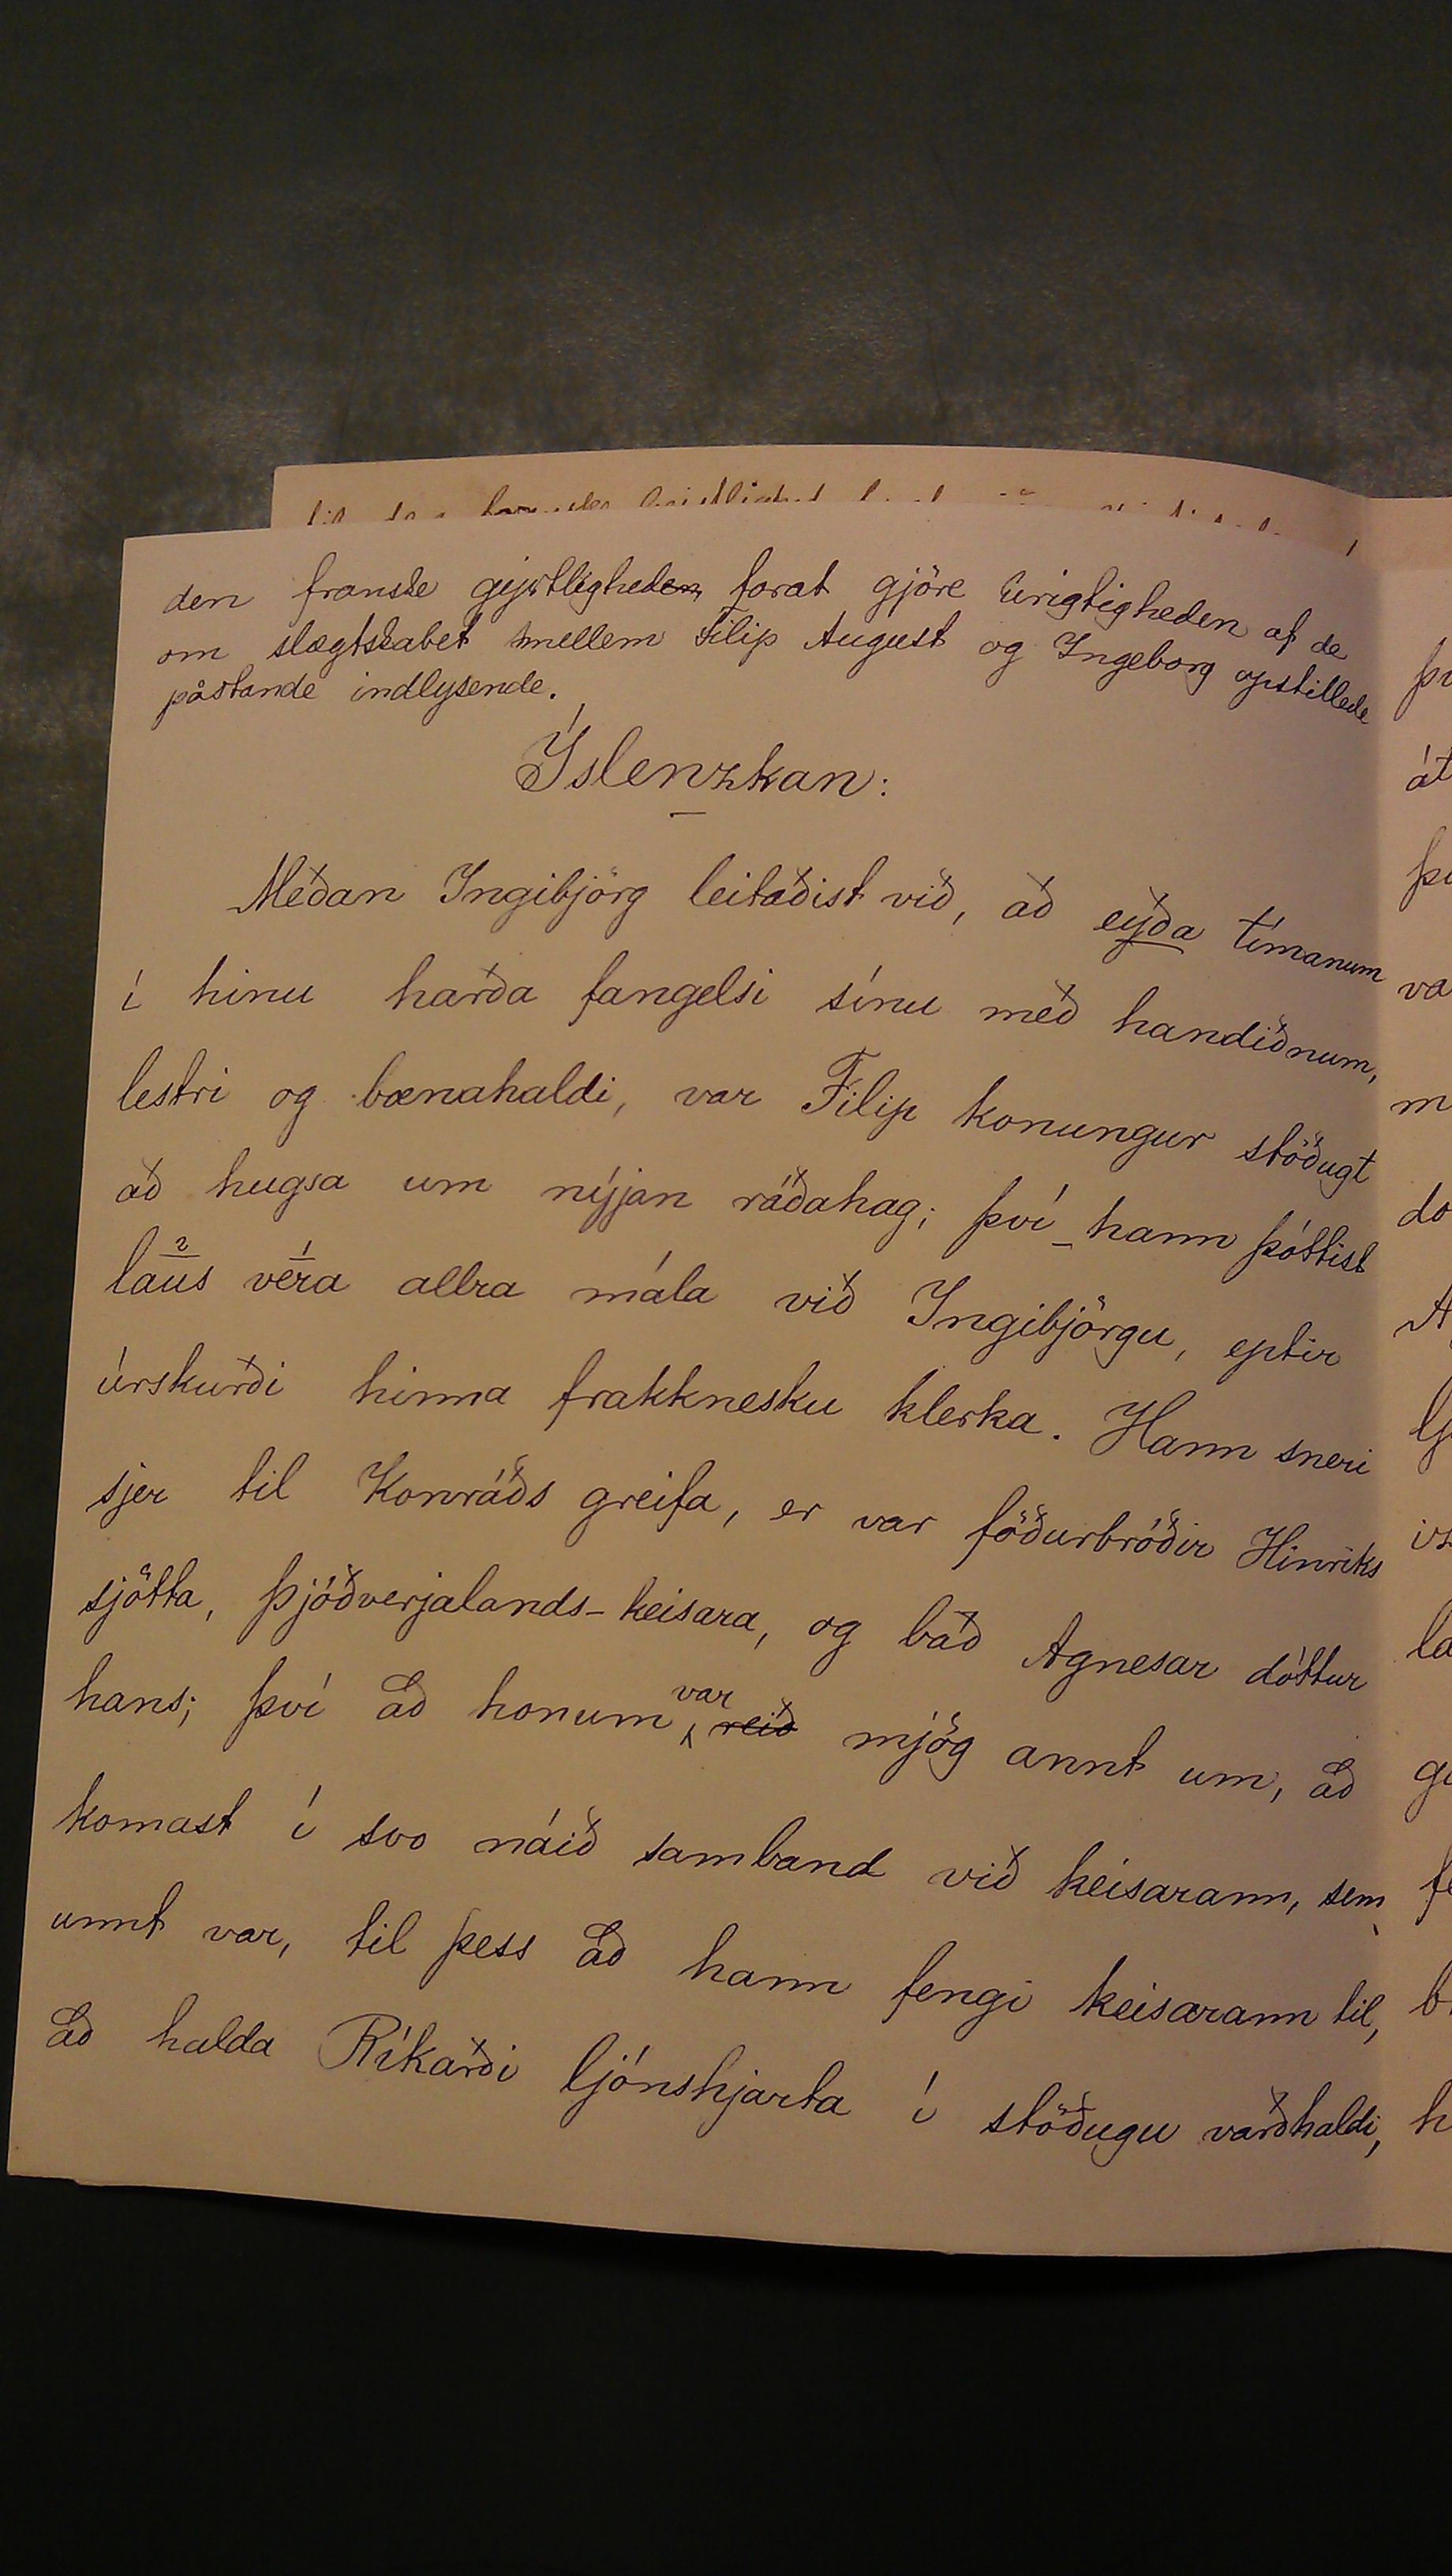 den franske gejstligheden forat gjöre Urigtigheden af de
om slægtskabet mellem Filip August og Ingeborg opstillede
påstande indlysende.
Íslenzkan:
Meðan Ingibjörg leitaðist við, að eyða tímanum
í hinu harða fangelsi sínu með handiðnum,
lestri og bænahaldi, var Filip konungur stöðugt
að hugsa um nýjan ráðahag; því hann þóttist
2 1
laus vera allra mála við Ingibjörgu, eptir
úrskurði hinna frakknesku klerka. Hann sneri
sjer til Konráðs greifa, er var föðurbróðir Hinriks
sjötta, Þjóðverjalands-keisara, og bað Agnesar dóttur
hans; því að honum var reið mjög annt um, að
komast í svo náið samband við keisarann, sem
unnt var, til þess að hann fengi keisarann til,
að halda Ríkarði ljónshjarta í stöðugu varðhaldi,